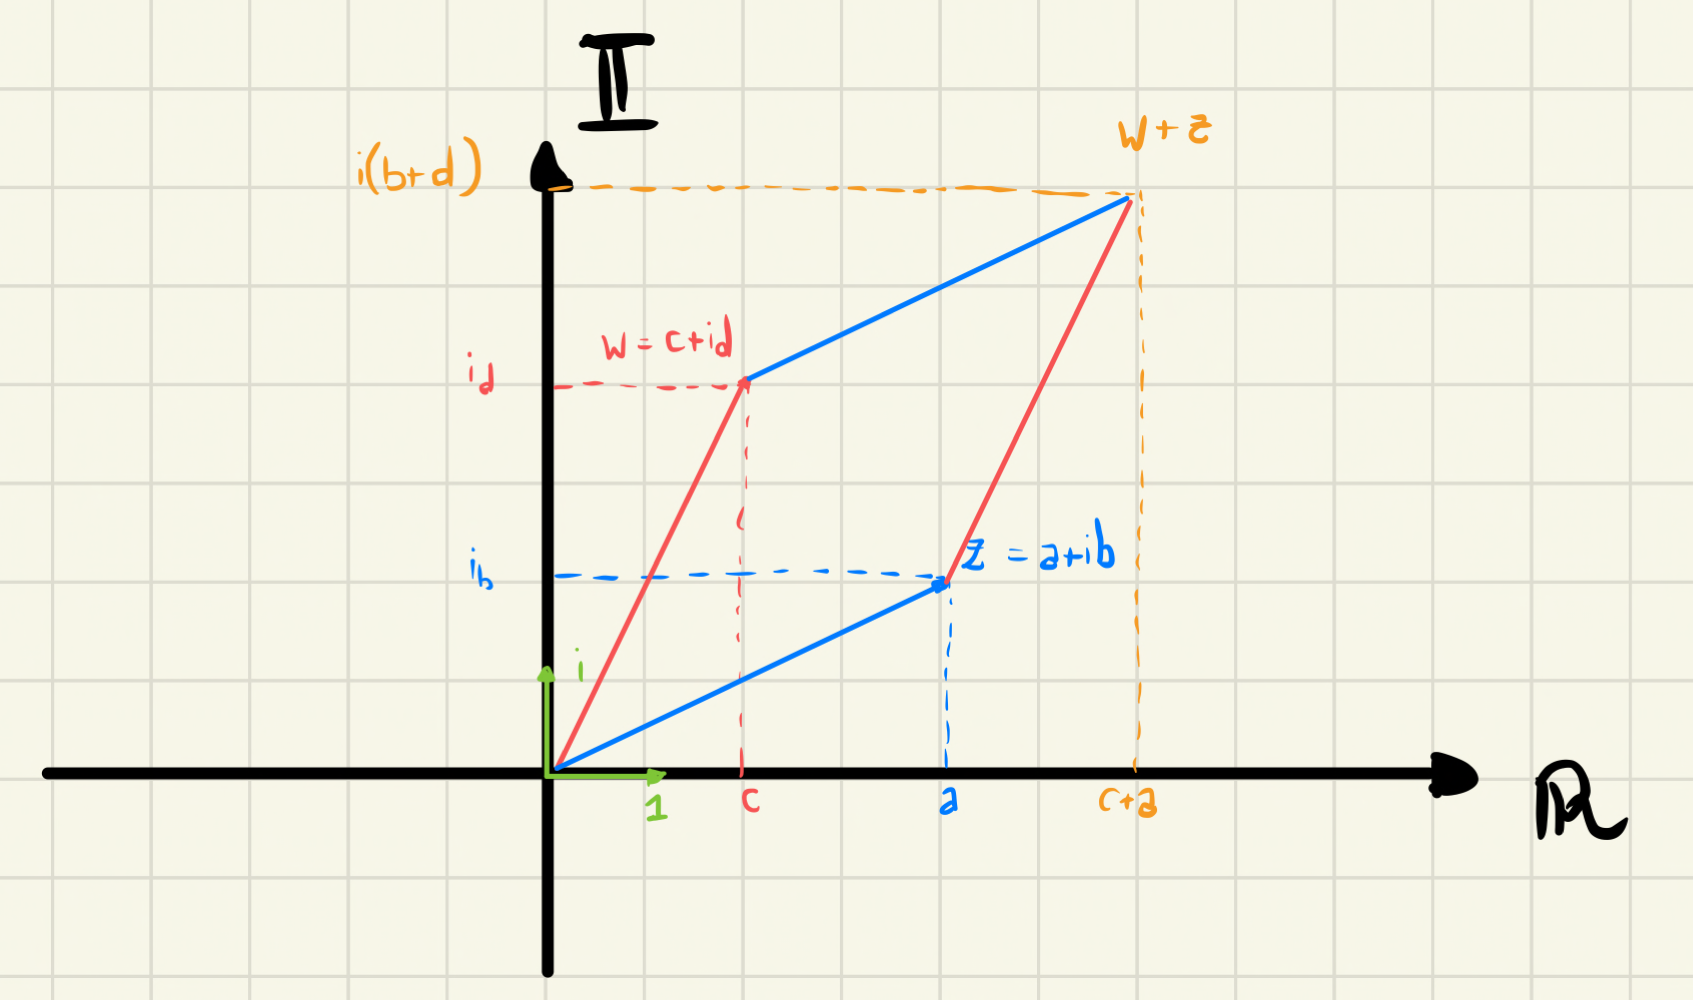 𝕀
w+z
i(b+d)
w=c+id
id
z = a+ib
ib
i
1
c
a
c+a
ℝ